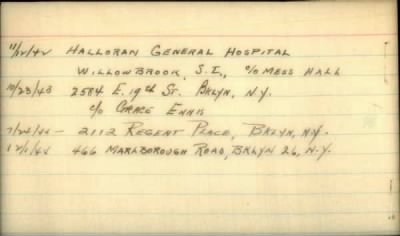 11/12/42 HALLORAN GENERAL HOSPITAL
WILLOWBROOK, S.I., c/o MESS HALL
10/23/43 2584 E. 19th ST. BKLYN, N.Y.
c/o GRACE ENNIS
7/24/44 - 2112 REGENT PLACE, BKLYN, N.Y.
12/1/44 466 MARLBOROUGH ROAD, BKLYN 26, N.Y.